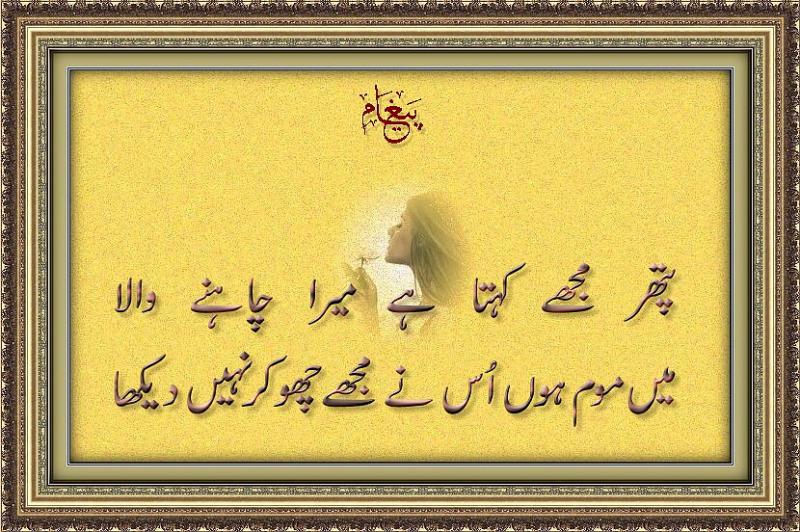 پیغام
پتھر مجھے کہتا ہے میرا چاہنے والا
میں موم ہوں اُس نے مجھے چھو کر نہیں دیکھا